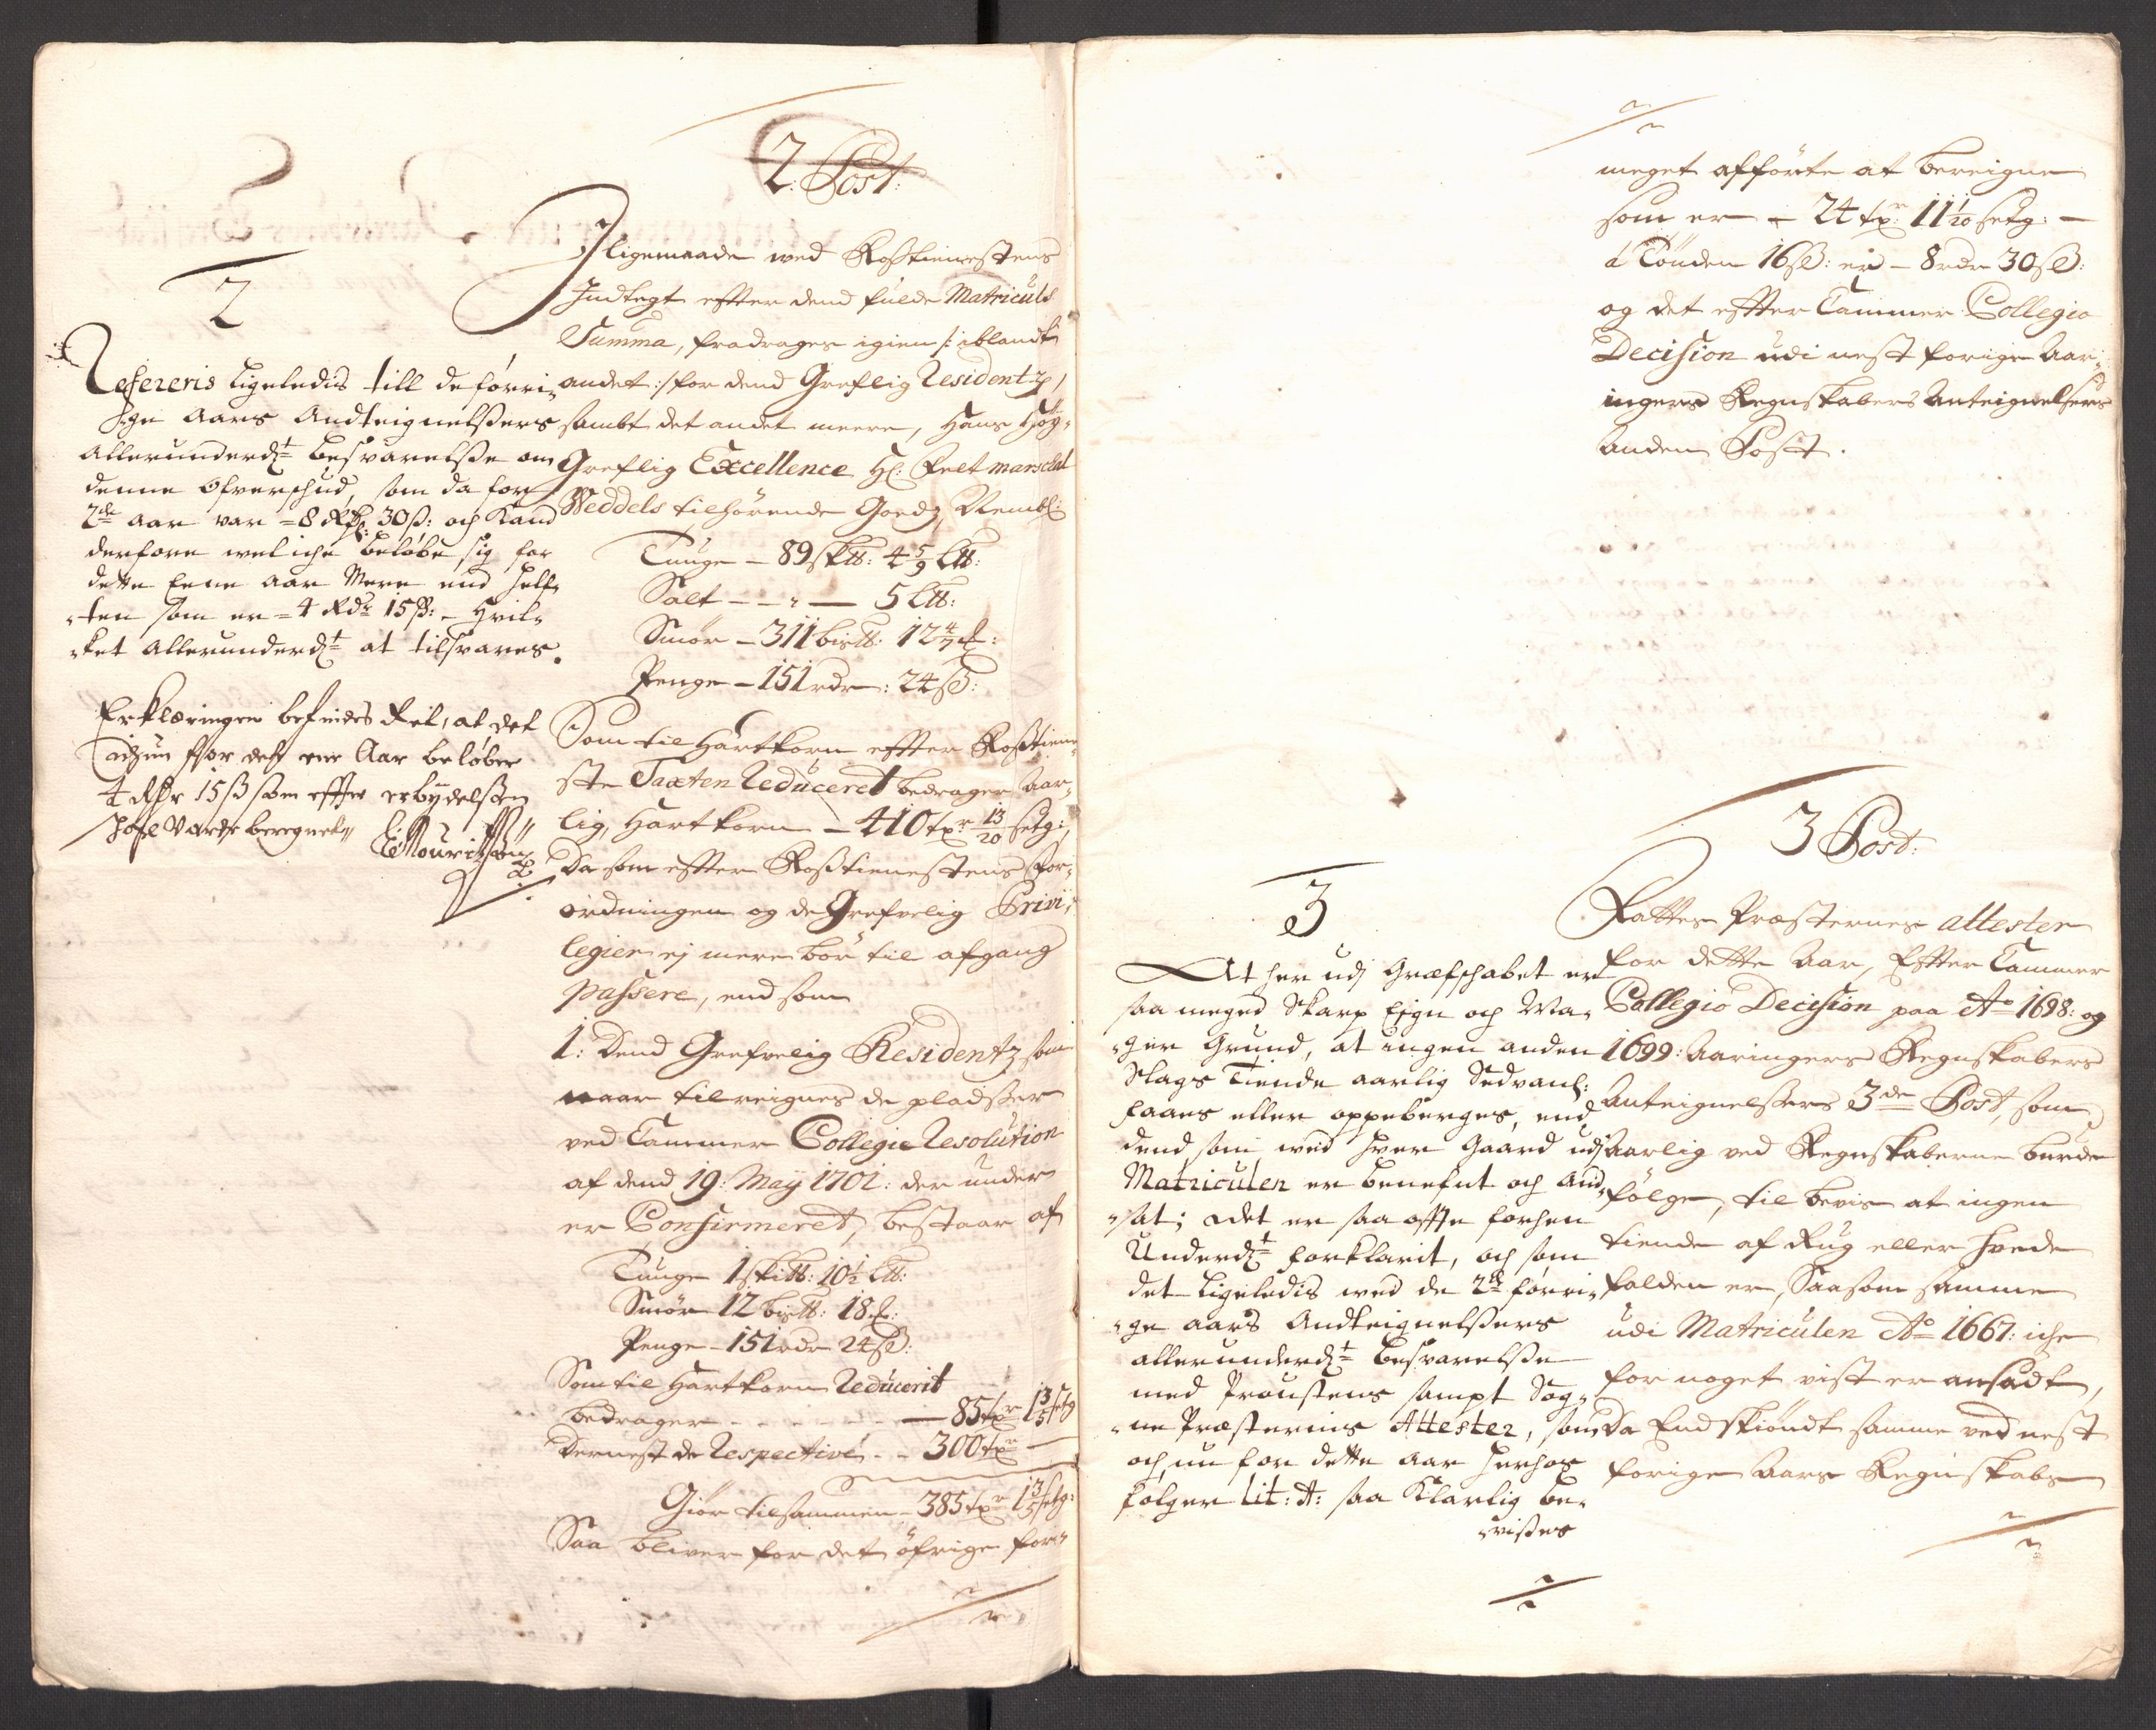 2
Refereris ligeledis till de forri-
ge Aars Andteignelssers
allerunderd:t besvarelsse om
denne Ofverschud, som da for
2de aar var = 8 Rdr. 30 ß: och Kand
derfore wel iche beløbe sig for
dette Eene aar Mere end helf-
ten som er = 4 Rdr 15 ß: - hvil-
ket allerunderd:t at tilsvares.
Erklæringen befindes Ret, at det
 for det ene Aar beløber
4 Rdr 15 ß som effter erbydelssen
 Vorde beregnet
2. Post:
I ligemaade wed Rosstienestens
Indtegt effter dend fulde Matriculs
Summa, fradrages igien /: iblandt
andet :/ for dend Greflig Residentz,
sambt det andet meere, Hans Høy-
Greflig Excellence H: Felt marschal
Weddels tilhørende Goedz, Nembl:
Tunge - 89 skt: 4 5/9 Lt:
Salt - - - 5 Lt:
Smør - 311 bist: 12 4/7 t:
Penge - 151 rdr: 24 ß:
Som til Hartkorn effter Rosstiene-
ste Taxten Reduceret bedrager Aar-
lig, Hartkorn - 410 tr 13/20 setg:,
Da som effter Rosstienestens For-
ordningen og de Grefvelig Privi-
legier ej mere bør til afgang
passere, end som
1: Dend Grefvelig Residentz som
naar tilreignes de pladsser
ved Cammer Collegie Resolution
af dend 19: Maÿ 1701: der under
er Confirmeret, bestaar af
Tunge 1 skit: 10 1/2 Lt:
Smør 12 bist: 18 t:
Penge - 151 rdr 24 ß:
Som til Hartkorn Reducerit
bedrager - - - 85 tr 1 3/5 setg
Dernest de Respective - - 300 tr -
Giør tilsammen - 385 tr 1 3/5 setg:
Saa bliver for det øfrige for
meget afførte at bereigne
som er - 24 tr: 11 1/20 setg: -
a Tønden 16 ß: er - 8 rdr 30 ß:
og det effter Cammer Collegio
Decision udi nest forige Aar-
ingers Regnskabers Anteignelsers
anden Post.
3
At her udj Grefschabet er
saa meged Skarp Eign och Ma-
ger Grund, at ingen anden
Slags Tiende aarlig Sedvanl:
faaes eller oppeberges, end
dend som wed hver Gaard udj
Matriculen er benefnt och And-
sat; Det er saa offte forhen
Underd:t forklarit, och som
det ligeledis wed de 2de forri-
ge aars Andteignelssers
allerunderd:t besvarelsse
med Proustens sampt Sog-
ne Præsternis Attester, som
och nu for dette aar herhos
følger Lit: A: saa Klarlig be-
vises
3 Post:
Fattes Præsternes attester
for dette Aar, Effter Cammer
Collegio Decision paa Ao 1698: og
1699: Aaringers Regnskabers
Anteignelssers 3de Post, som
Aarlig ved Regnskaberne burde
følge, til bevis at ingen
tiende af Rug eller Hvede
falden er, Saasom samme
udi Matriculen Ao 1667: iche
for noget vist er ansadt,
Da Endskiøndt samme ved nest
forige Aars Regnskabs